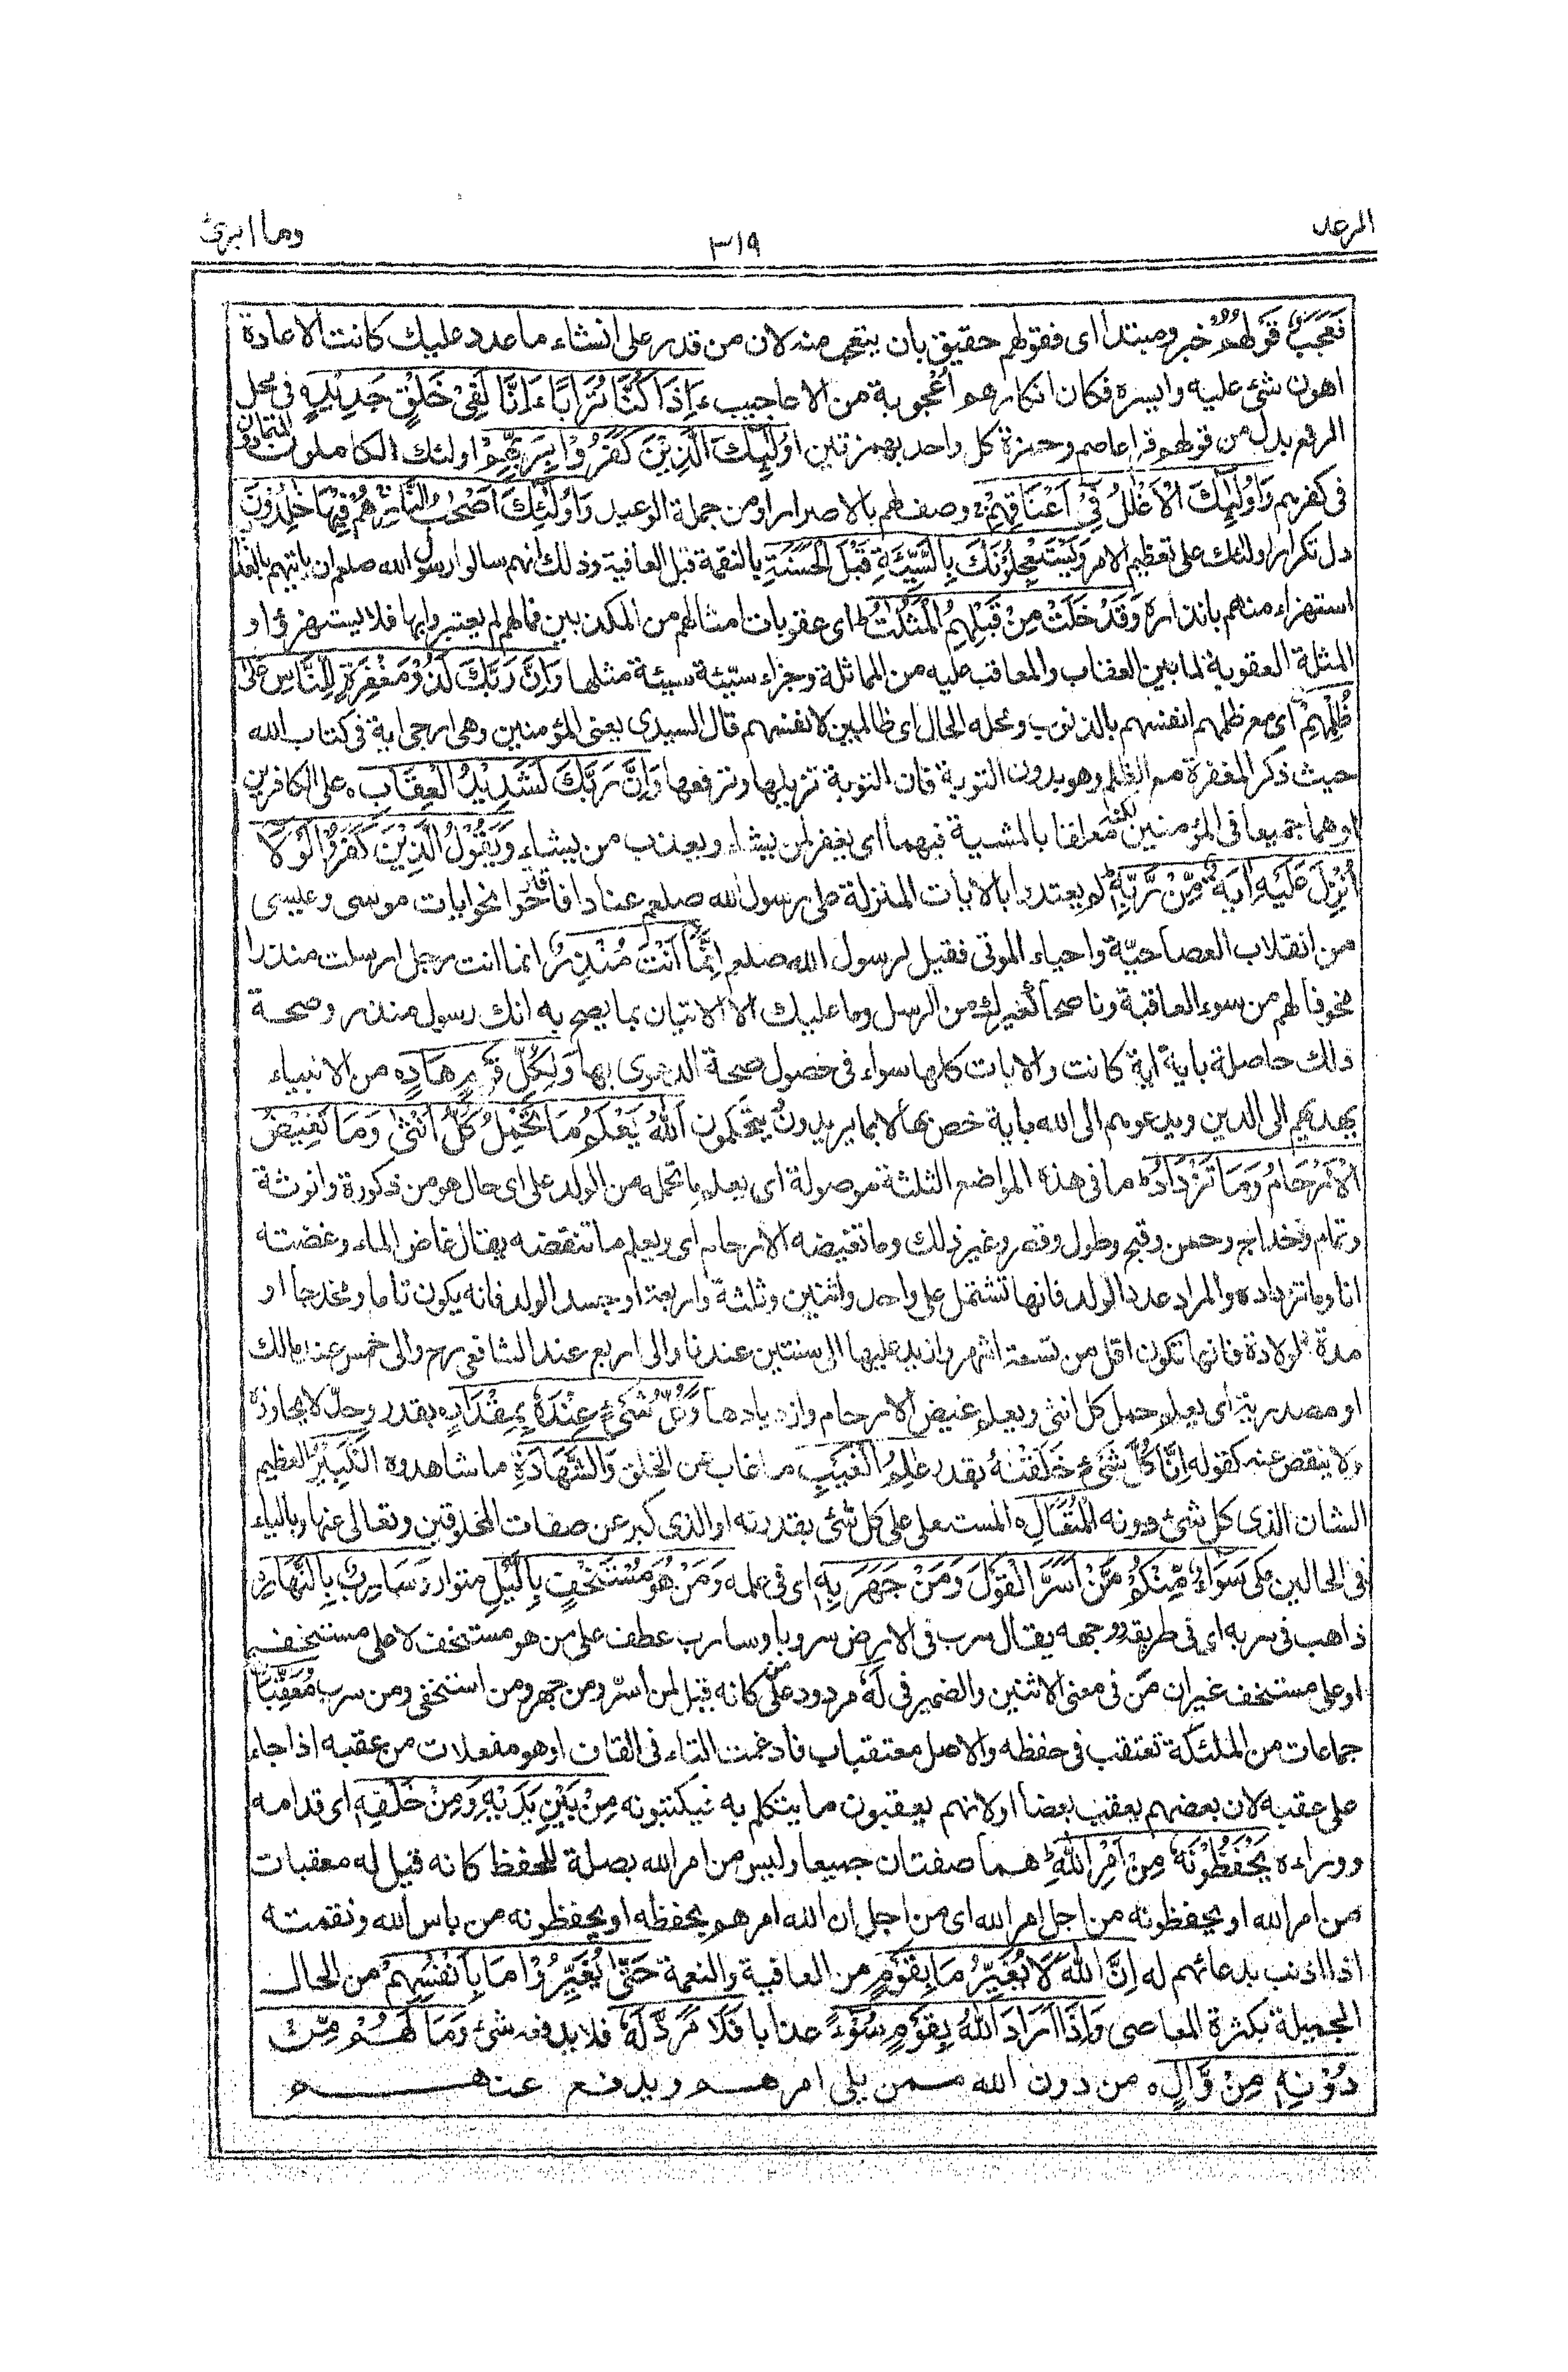 الرعد
٣١٩
وما ابرئ
فَعَجَبٌ قَوْلُهُمْ خبر ومبتدا اى فقولهم حقيق بان يتعجب منه لان من قدر على انشاء ما عدد عليك كانت الاعادة
اهون شئ عليه وايسره فكان انكارهم اعجوبة من الاعاجيب ءَاِذَا كُنَّا تُرَابًا ءَاِنَّا لَفِىْ خَلْقٍ جَدِيْدٍ فى محل
الرفع بدل من قولهم قرا عاصم وحمزة كل واحد بهمزتين اُولٰٓئِكَ الَّذِيْنَ كَفَرُوْا بِرَبِّهِمْ اولئك الكاملون المتمادون
فى كفرهم وَاُولٰٓئِكَ الْاَغْلٰلُ فِىْٓ اَعْنَاقِهِمْ وصف لهم بالاصرار او من جملة الوعيد وَاُولٰٓئِكَ اَصْحٰبُ النَّارِ هُمْ فِيْهَا خٰلِدُوْنَ
دل تكرار اولئك على تعظيم الامر وَيَسْتَعْجِلُوْنَكَ بِالسَّيِّئَةِ قَبْلَ الْحَسَنَةِ بالنقمة قبل العافية وذلك انهم سالوا رسول الله صلعم ان ياتيهم بالعذاب
استهزاء منهم بانذاره وَقَدْ خَلَتْ مِنْ قَبْلِهِمُ الْمَثُلٰتُ ط اى عقوبات امثالهم من المكذبين فمالهم لم يعتبروا بها فلا يستهزؤا و
المثلة العقوبة لما بين العقاب والمعاقب عليه من المماثلة وجزاء سيّئة سيئة مثلها وَاِنَّ رَبَّكَ لَذُوْ مَغْفِرَةٍ لِّلنَّاسِ عَلٰى
ظُلْمِهِمْ اى مع ظلمهم انفسهم بالذنوب ومحله الحال اى ظالمين لانفسهم قال السدى يعنى المؤمنين وهى ارجى اية فى كتاب الله
حيث ذكر المغفرة مع الظلم وهو بدون التوبة فان التوبة تزيلها وترفعها وَاِنَّ رَبَّكَ لَشَدِيْدُ الْعِقَابِ ه على الكافرين
او هما جميعا فى المؤمنين لكنه معلقا بالمشية فيهما اى يغفر لمن يشاء ويعذب من يشاء وَيَقُوْلُ الَّذِيْنَ كَفَرُوْا لَوْلَآ
اُنْزِلَ عَلَيْهِ اٰيَةٌ مِّنْ رَّبِّهٖ ط لم يعتدوا بالايات المنزلة على رسول الله صلعم عنادا فاقترحوا نحو ايات موسى وعيسى
من انقلاب العصا حيّة واحياء الموتى فقيل لرسول الله صلعم اِنَّمَآ اَنْتَ مُنْذِرٌ انما انت رجل ارسلت منذرا
مخوفا لهم من سوء العاقبة وناصحا كغيرك من الرسل وما عليك الا الاتيان بما يصح به انك رسول منذر وصحة
ذلك حاصلة باية اية كانت والايات كلها سواء فى حصول صحة الدعوى بها وَلِكُلِّ قَوْمٍ هَادٍ ه من الانبياء
يهديهم الى الدين ويدعوهم الى الله باية خص بها لا بما يريدون يتحكمون اَللّٰهُ يَعْلَمُ مَا تَحْمِلُ كُلُّ اُنْثٰى وَمَا تَغِيْضُ
الْاَرْحَامُ وَمَا تَزْدَادُ ط ما فى هذه المواضع الثلثة موصولة اى يعلم ما تحمله من الولد على اى حال هو من ذكورة وانوثة
وتمام وخداج وحسن وقبح وطول وقصر وغير ذلك وما تغيضه الارحام اى ويعلم ما تنقصه يقال غاض الماء وغضته
انا وما تزداده والمراد عدد الولد فانها تشتمل على واحد واثنين وثلثة واربعة او جسد الولد فانه يكون تاما ومخدجا او
مدة الولادة فانها تكون اقل من تسعة اشهر وازيد عليها الى سنتين عندنا والى اربع عند الشافعى رح والى خمس عند مالك
او مصدرية اى يعلم حمل كل انثى ويعلم غيض الارحام وازديادها وَكُلُّ شَىْءٍ عِنْدَهٗ بِمِقْدَارٍ ه بقدر وحد لا يجاوزه
ولا ينقص عنه كقوله اِنَّا كُلَّ شَىْءٍ خَلَقْنٰهُ بقدر عٰلِمُ الْغَيْبِ ما غاب عن الخلق وَالشَّهَادَةِ ما شاهدوه الْكَبِيْرُ العظيم
الشان الذى كل شئ دونه الْمُتَعَالِ ه المستعلى على كل شئ بقدرته او الذى كبر عن صفات المخلوقين وتعالى عنها وبالياء
فى الحالين مكى سَوَآءٌ مِّنْكُمْ مَّنْ اَسَرَّ الْقَوْلَ وَمَنْ جَهَرَ بِهٖ اى فى علمه وَمَنْ هُوَ مُسْتَخْفٍ بِالَّيْلِ متوار وَسَارِبٌ بِالنَّهَارِ ه
ذاهب فى سربه اى فى طريقه ووجهه يقال سرب فى الارض سروبا وسارب عطف على من هو مستخف لا على مستخف
او على مستخف غير ان مَن فى معنى الاثنين والضمير فى لَهٗ مردود على من كانه قيل لمن اسرّ ومن جهر ومن استخفى ومن سرب مُعَقِّبٰتٌ
جماعات من الملئكة تعتقب فى حفظه والاصل معتقبات فادغمت التاء فى القاف او هو مفعلات من عقبه اذا جاء
على عقبه لان بعضهم يعقب بعضا او لانهم يعقبون ما يتكلم به فيكتبونه مِنْ بَيْنِ يَدَيْهِ وَمِنْ خَلْفِهٖ اى قدامه
ووراءه يَحْفَظُوْنَهٗ مِنْ اَمْرِ اللّٰهِ ط هما صفتان جميعا وليس من امر الله بصلة للحفظ كانه قيل له معقبات
من امر الله او يحفظونه من اجل امر الله اى من اجل ان الله امرهم بحفظه او يحفظونه من باس الله ونقمته
اذا اذنب بدعائهم له اِنَّ اللّٰهَ لَا يُغَيِّرُ مَا بِقَوْمٍ من العافية والنعمة حَتّٰى يُغَيِّرُوْا مَا بِاَنْفُسِهِمْ من الحال
الجميلة بكثرة المعاصى وَاِذَآ اَرَادَ اللّٰهُ بِقَوْمٍ سُوْٓءًا عذابا فَلَا مَرَدَّ لَهٗ فلا يدفعه شئ وَمَا لَهُمْ مِّنْ
دُوْنِهٖ مِنْ وَّالٍ ه من دون الله ممن يلى امرهم ويدفع عنهم